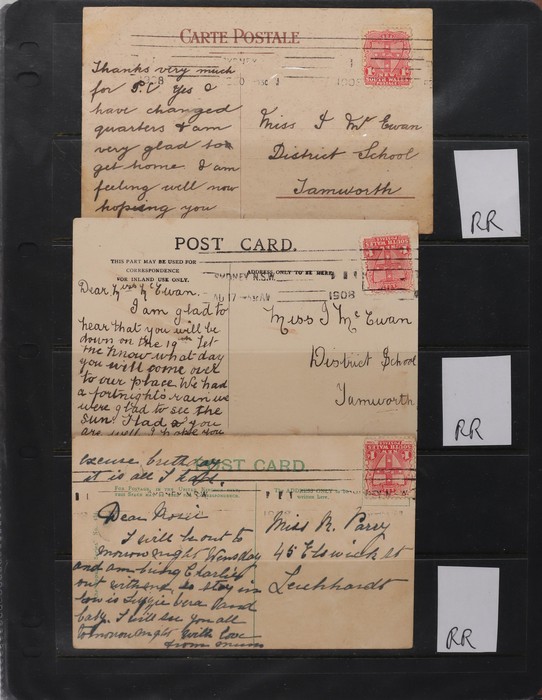 CARTE POSTALE
SYDNEY
1908
Thanks very much
for P.C Yes I
have changed
quarters & am
very glad to
get home. I am
feeling well now
hoping you
Miss I McEwan
District School
Tamworth
RR
POST CARD.
THIS PART MAY BE USED FOR
CORRESPONDENCE
FOR INLAND USE ONLY.
ADDRESS ONLY TO BE HERE.
SYDNEY N.S.W.
1908
Dear Miss McEwan.
I am glad to
hear that you will be
down on the 19th let
me know what day
you will come over
to our place. We had
a fortnight's rain we
were glad to see the
sun. Had you
are well I hope you
Miss I McEwan
District School
Tamworth
RR
excuse birthday
it is all I have.
POST CARD.
SYDNEY N.S.W
Dear Rosie
I will be out to
morrow night Wensday
and am bring Charlie
out with me so stay in
Lizzie Vera and
baby. I will see you all
tomorrow night with love
from Mum
Miss R. Parry
45 Elswick st
Leichhardt
RR